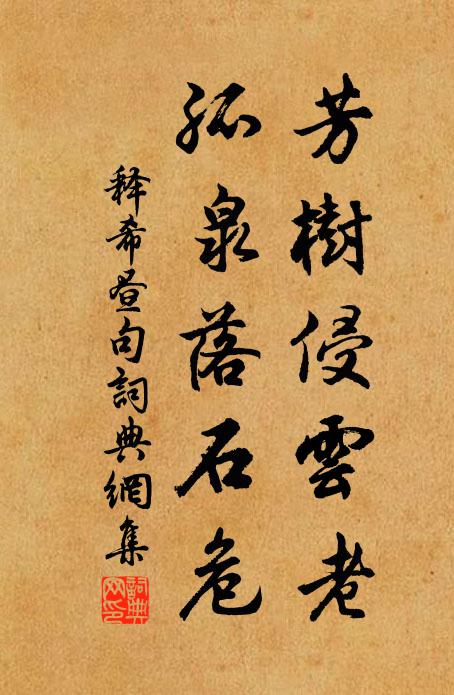 芳樹侵雲老
孤泉落石危
释希昼句詞典網集
詞典网印